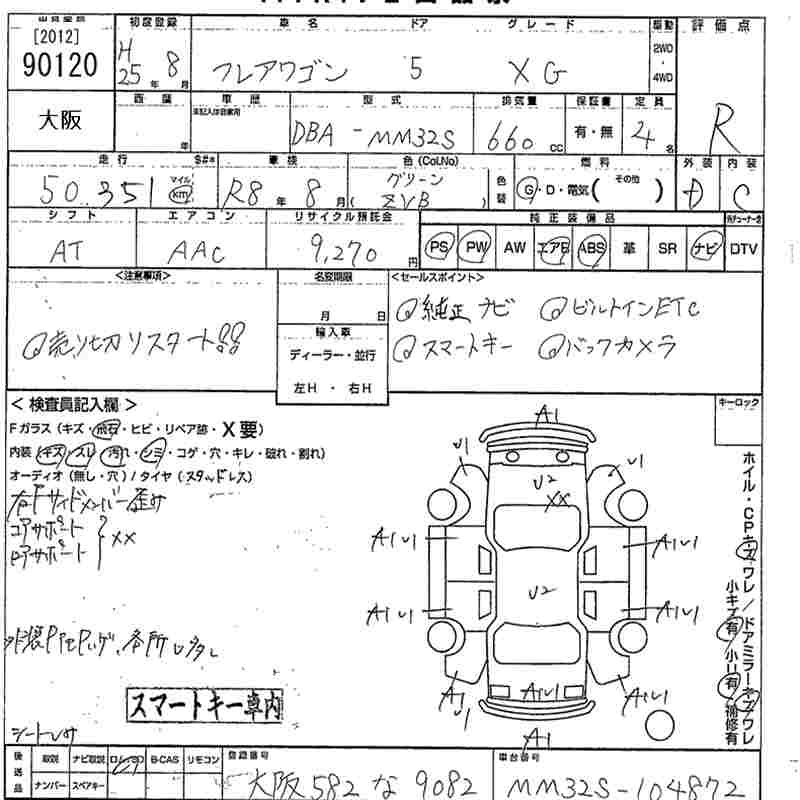 出品番号 初度登録 車名 ドア グレード 駆動 評価点
[2012]
90120
H25年 8月
フレアワゴン 5 XG
2WD・4WD
R
大阪
車歴 型式 排気量 保証書 定員
年
DBA-MM32S 660cc 有・無 4名
走行 車検 色(CoLNo) 燃料 外装 内装
50,351 マイル km R8年 8月 グリーン ZVB 色替 G・D・電気( その他 ) D C
シフト エアコン リサイクル預託金 純正装備品
AT AAC 9,270円 PS PW AW エアB ABS 革 SR ナビ DTV
<注意事項> 名変期限 <セールスポイント>
月 日
◎売り切りスタート!!
◎純正ナビ ◎ビルトインETC
◎スマートキー ◎バックカメラ
輸入車
ディーラー・並行
左H・右H
<検査員記入欄> キーロック
Fガラス(キズ・飛石・ヒビ・リペア跡・X要)
内装(キズ・スレ・汚れ・シミ・コゲ・穴・キレ・破れ・割れ)
オーディオ(無し・穴)/タイヤ(スタッドレス)
右Fサイドメンバー歪み
コアサポート
Rアサポート XX
各所
スマートキー車内
シート
A1
U1 U1
U2
XX
A1U1 A1U1
U2
A1U1 A1U1
A1 U1 A1U1 A1U1
A1
ホイル・CPキズワレ/ドアミラーキズワレ
小キズ有 小凹有 補修有
後送品 取説 ナビ取説 ロム/SD B-CAS リモコン 登録番号 車台番号
ナンバー スペアキー 大阪582な9082 MM32S-104872